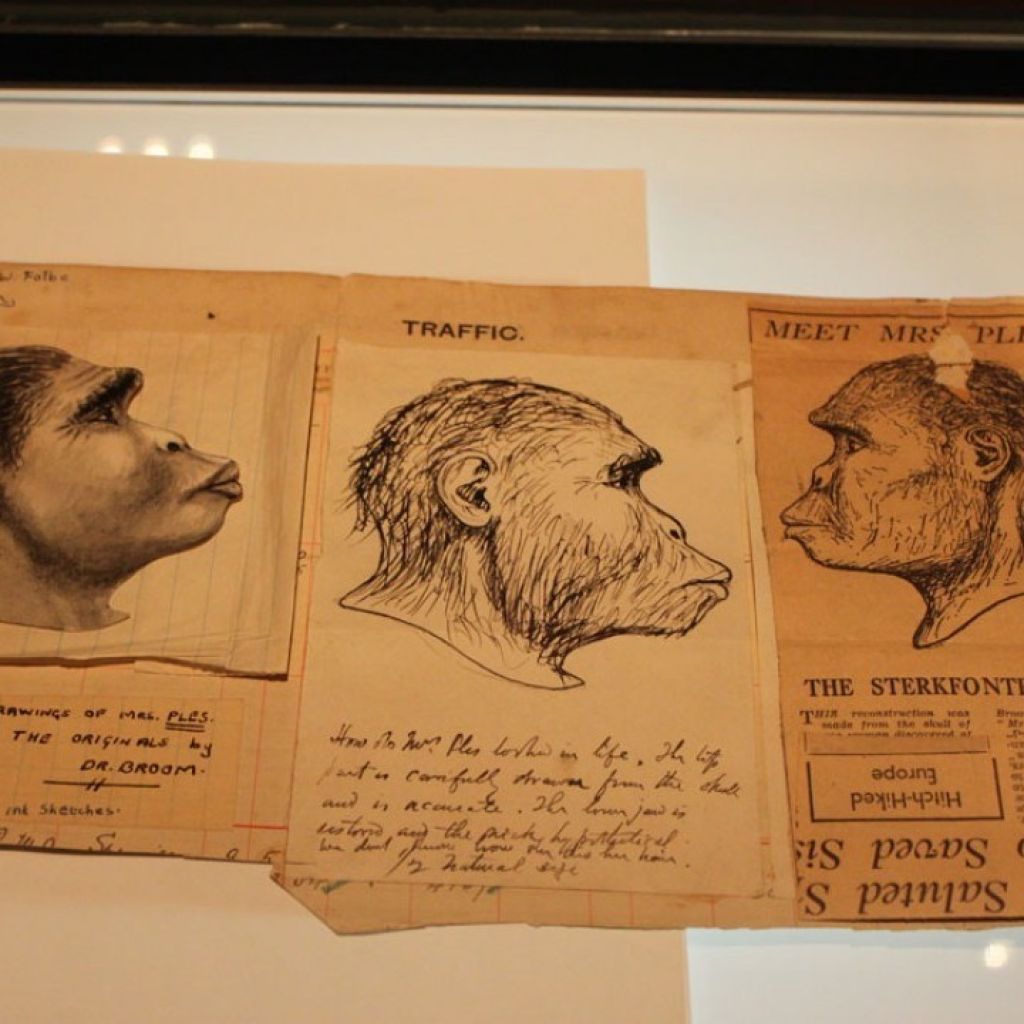 Folbe
TRAFFIC.
MEET MRS PLE
RAWINGS OF MRS. PLES.
THE ORIGINALS by
DR. BROOM.
ink Sketches.
How Dr Mrs Ples looked in life. The top
part is carefully drawn from the skull
and is accurate. The lower jaw is
restored, and the neck hypothetical.
We don't know how she did her hair.
1/2 natural size
THE STERKFONTE
THIS reconstruction was
made from the skull of
woman discovered at
Hitch-Hiked
Europe
Saved Sis
Saluted S